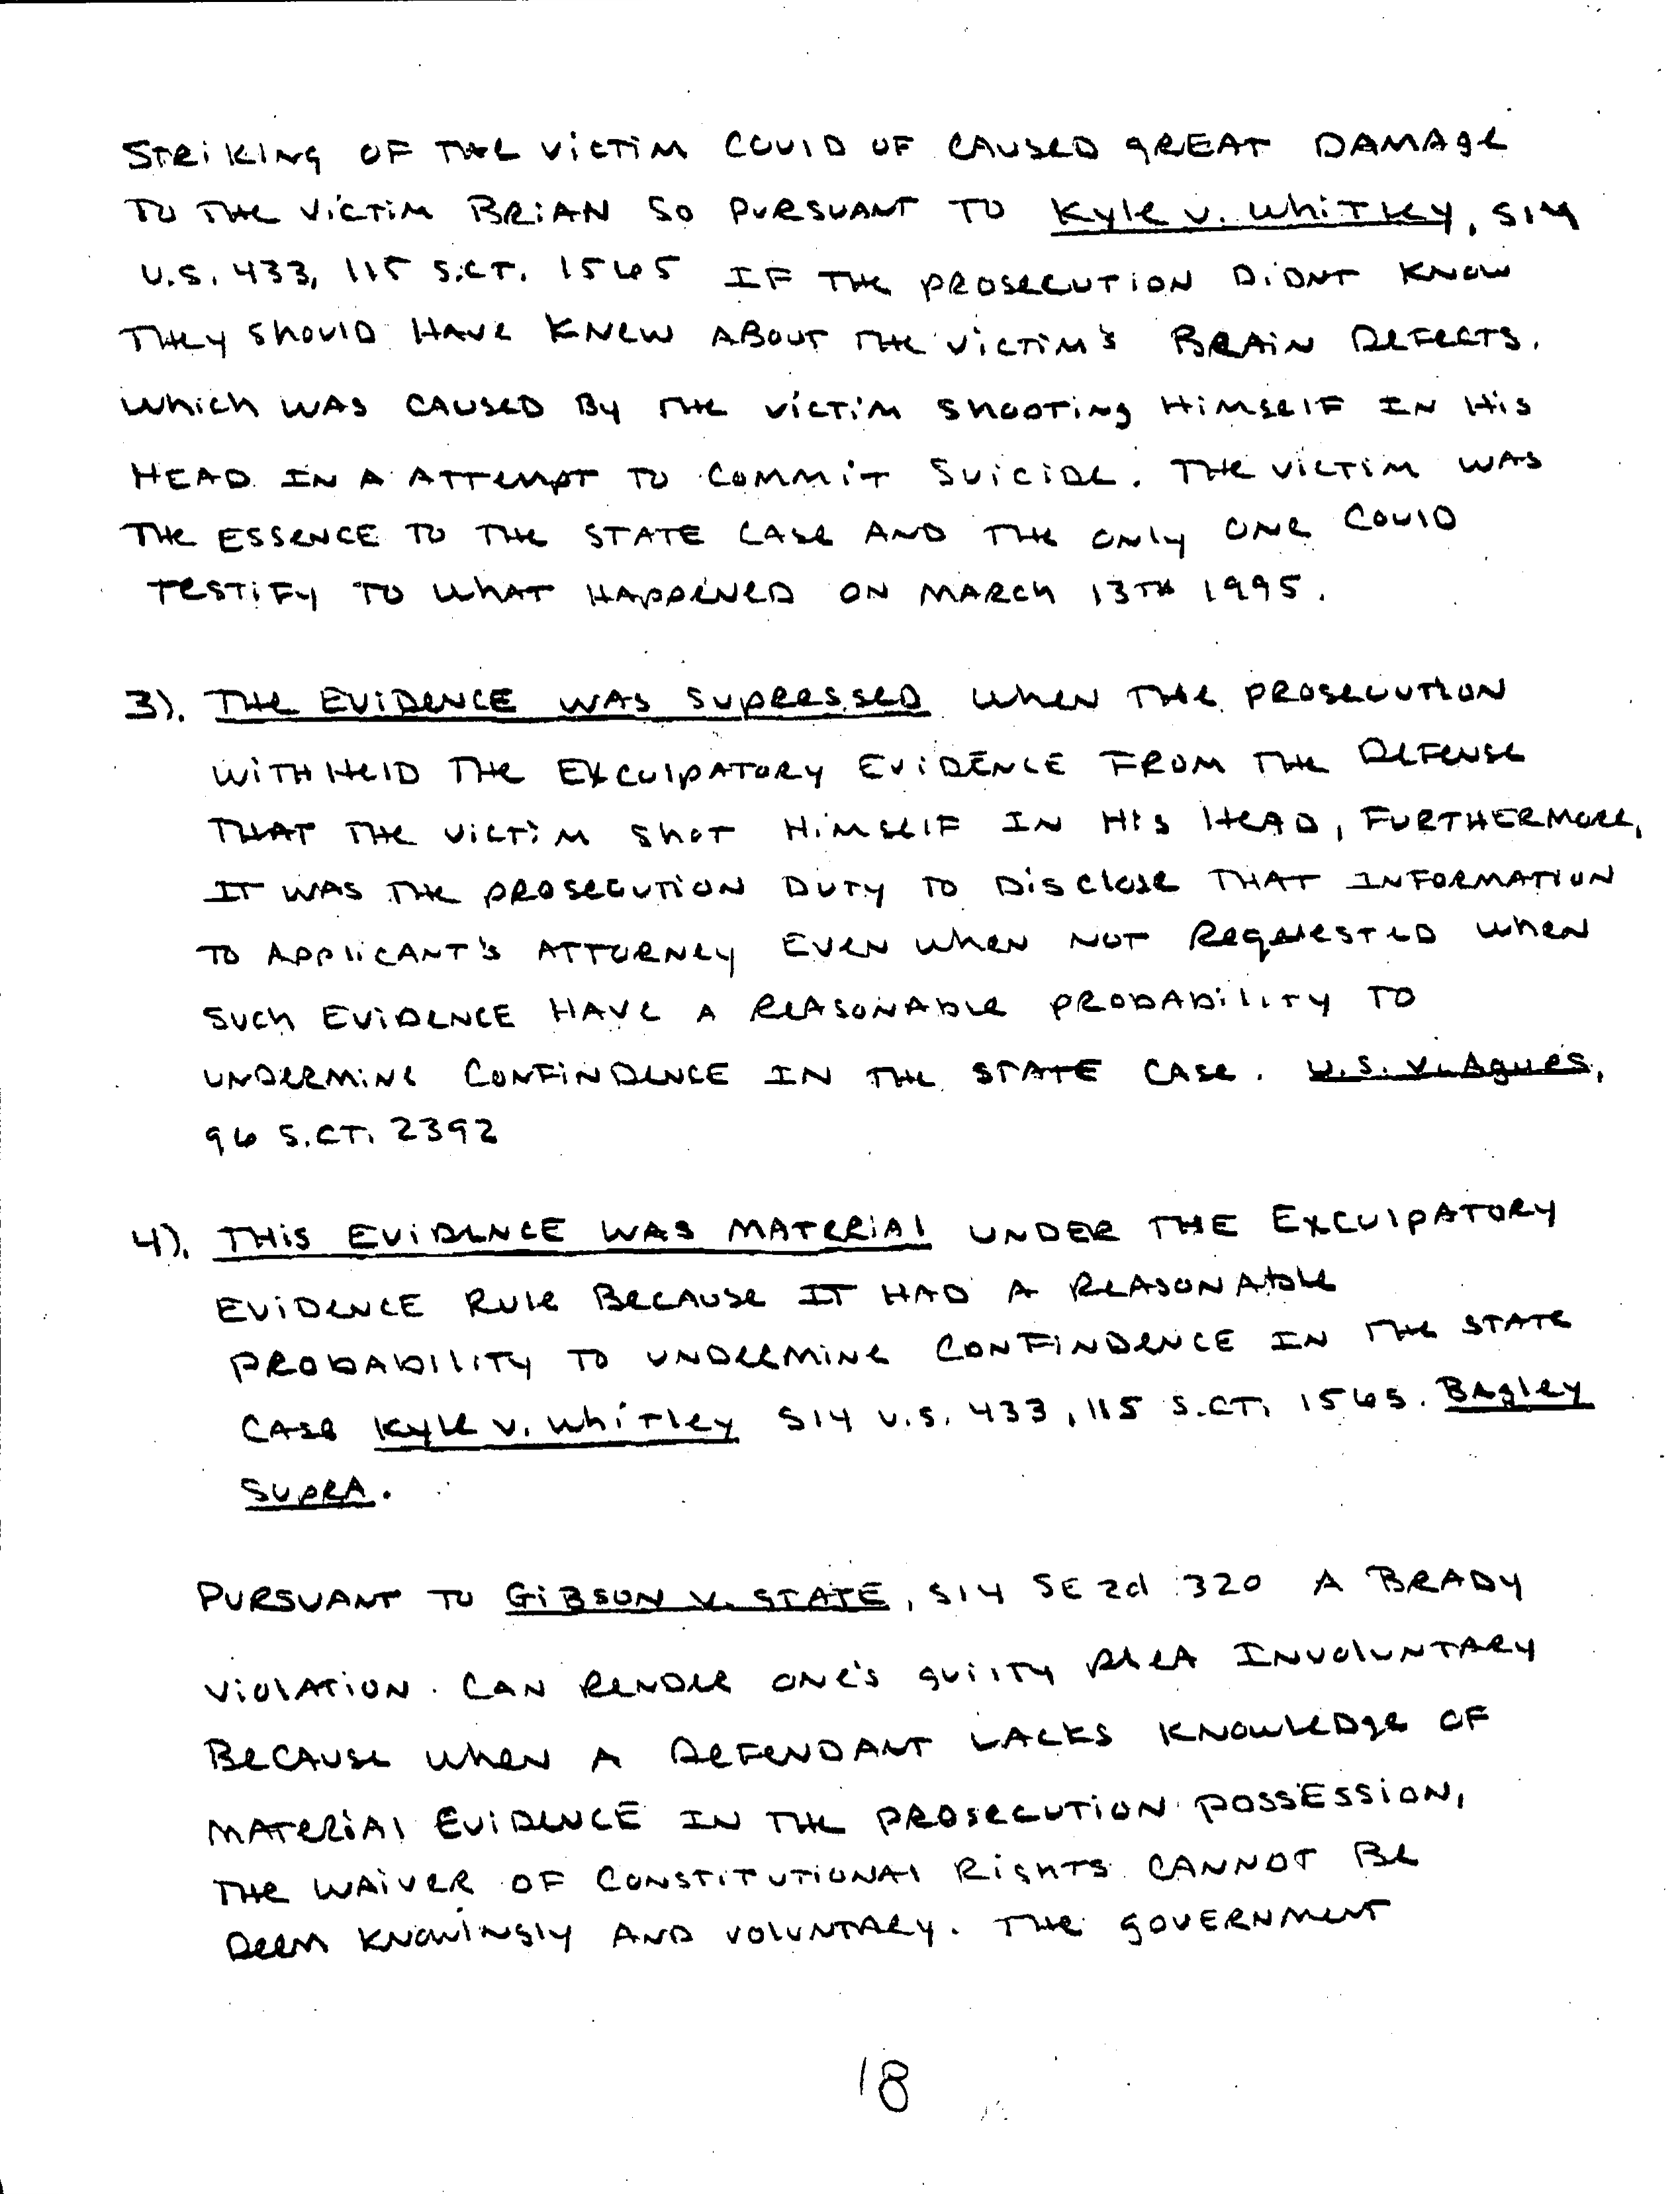 STRIKING OF THE VICTIM COULD OF CAUSED GREAT DAMAGE
TO THE VICTIM BRIAN SO PURSUANT TO Kyle v. Whitley, 514
U.S. 433, 115 S.CT. 1565 IF THE PROSECUTION DIDNT KNOW
THEY SHOULD HAVE KNEW ABOUT THE VICTIM'S BRAIN DEFECTS.
WHICH WAS CAUSED BY THE VICTIM SHOOTING HIMSELF IN HIS
HEAD IN A ATTEMPT TO COMMIT SUICIDE. THE VICTIM WAS
THE ESSENCE TO THE STATE CASE AND THE ONLY ONE COULD
TESTIFY TO WHAT HAPPENED ON MARCH 13TH 1995.
3). THE EVIDENCE WAS SUPRESSED WHEN THE PROSECUTION
WITHHELD THE EXCULPATORY EVIDENCE FROM THE DEFENSE
THAT THE VICTIM SHOT HIMSELF IN HIS HEAD, FURTHERMORE,
IT WAS THE PROSECUTION DUTY TO DISCLOSE THAT INFORMATION
TO APPLICANT'S ATTORNEY EVEN WHEN NOT REQUESTED WHEN
SUCH EVIDENCE HAVE A REASONABLE PROBABILITY TO
UNDERMINE CONFINDENCE IN THE STATE CASE. U.S. v. Agues,
96 S.CT. 2392
4). THIS EVIDENCE WAS MATERIAL UNDER THE EXCULPATORY
EVIDENCE RULE BECAUSE IT HAD A REASONABLE
PROBABILITY TO UNDERMINE CONFINDENCE IN THE STATE
CASE Kyle v. Whitley 514 U.S. 433, 115 S.CT. 1565. Bagley
SUPRA.
PURSUANT TO GIBSON V. STATE, 514 SE 2d 320 A BRADY
VIOLATION CAN RENDER ONE'S GUILTY PLEA INVOLUNTARY
BECAUSE WHEN A DEFENDANT LACKS KNOWLEDGE OF
MATERIAL EVIDENCE IN THE PROSECUTION POSSESSION,
THE WAIVER OF CONSTITUTIONAL RIGHTS CANNOT BE
DEEM KNOWINGLY AND VOLUNTARY. THE GOVERNMENT
18